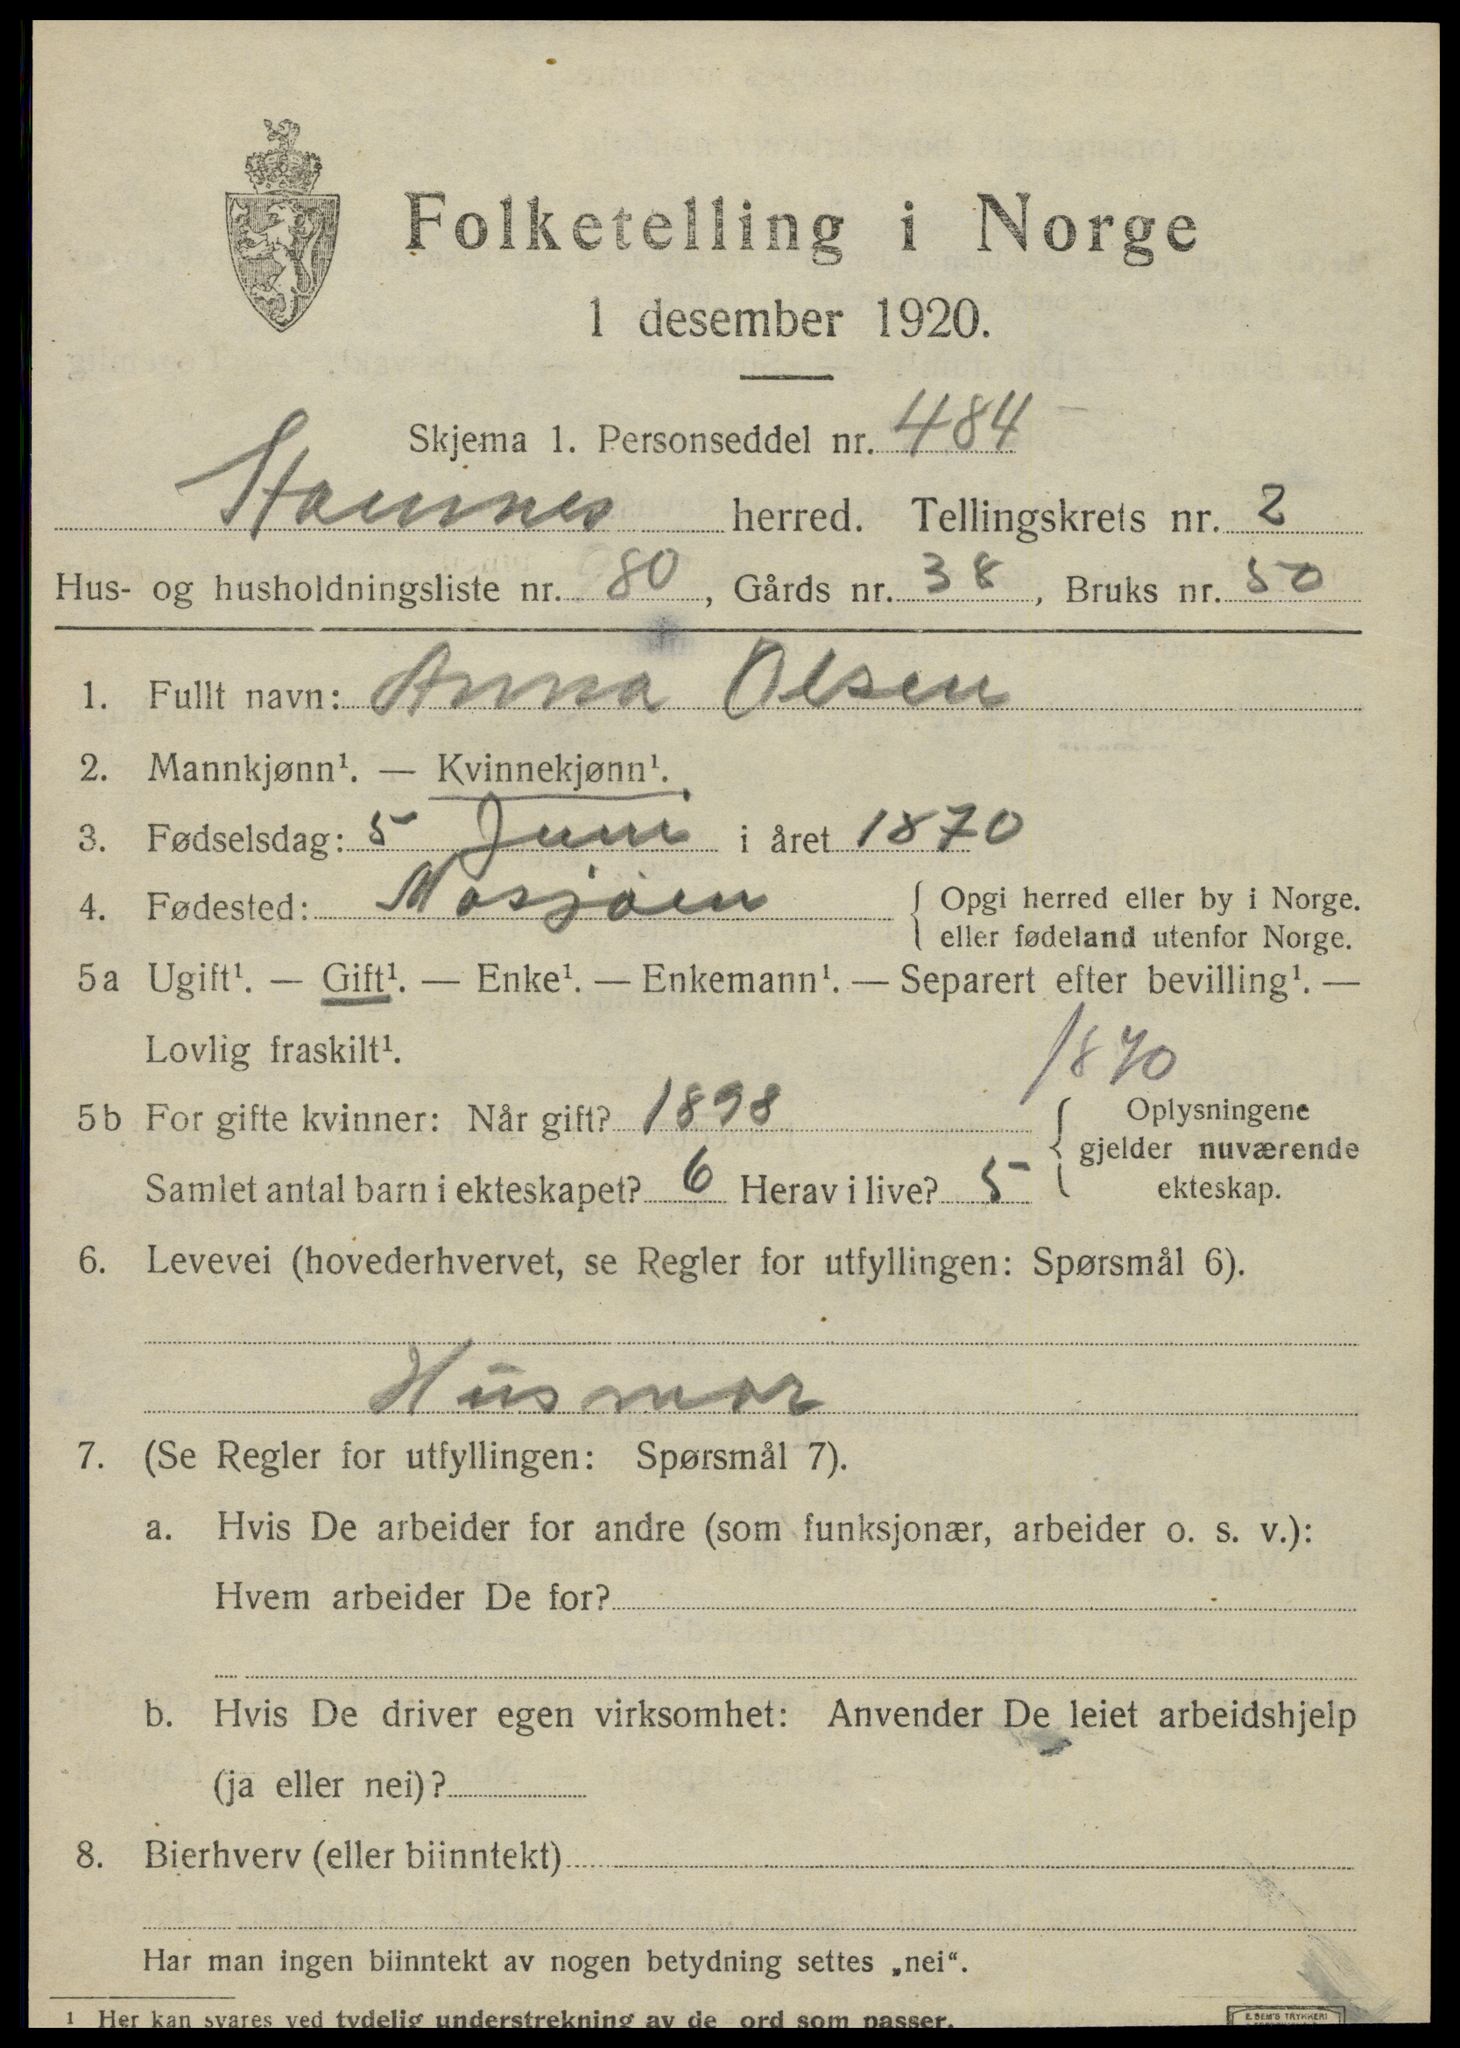 Folketelling i Norge
1 desember 1920.
Skjema 1. Personseddel nr. 484
Stamnes herred. Tellingskrets nr. 2
Hus- og husholdningsliste nr. 80, Gårds nr. 38, Bruks nr. 50
1. Fullt navn: Anna Olsen
2. Mannkjønn¹. — Kvinnekjønn¹.
3. Fødselsdag: 5 Juni i året 1870
4. Fødested: Mosjøen { Opgi herred eller by i Norge.
eller fødeland utenfor Norge.
5a Ugift¹. — Gift¹. — Enke¹. — Enkemann¹. — Separert efter bevilling¹. —
Lovlig fraskilt¹.
1870
5b For gifte kvinner: Når gift? 1898
Samlet antal barn i ekteskapet? 6 Herav i live? 5
{ Oplysningene
gjelder nuværende
ekteskap.
6. Levevei (hovederhvervet, se Regler for utfyllingen: Spørsmål 6).
Husmor
7. (Se Regler for utfyllingen: Spørsmål 7).
a. Hvis De arbeider for andre (som funksjonær, arbeider o. s. v.):
Hvem arbeider De for?
b. Hvis De driver egen virksomhet: Anvender De leiet arbeidshjelp
(ja eller nei)?
8. Bierhverv (eller biinntekt)
Har man ingen biinntekt av nogen betydning settes „nei“.
¹ Her kan svares ved tydelig understrekning av de ord som passer.
E. SEM'S TRYKKERI